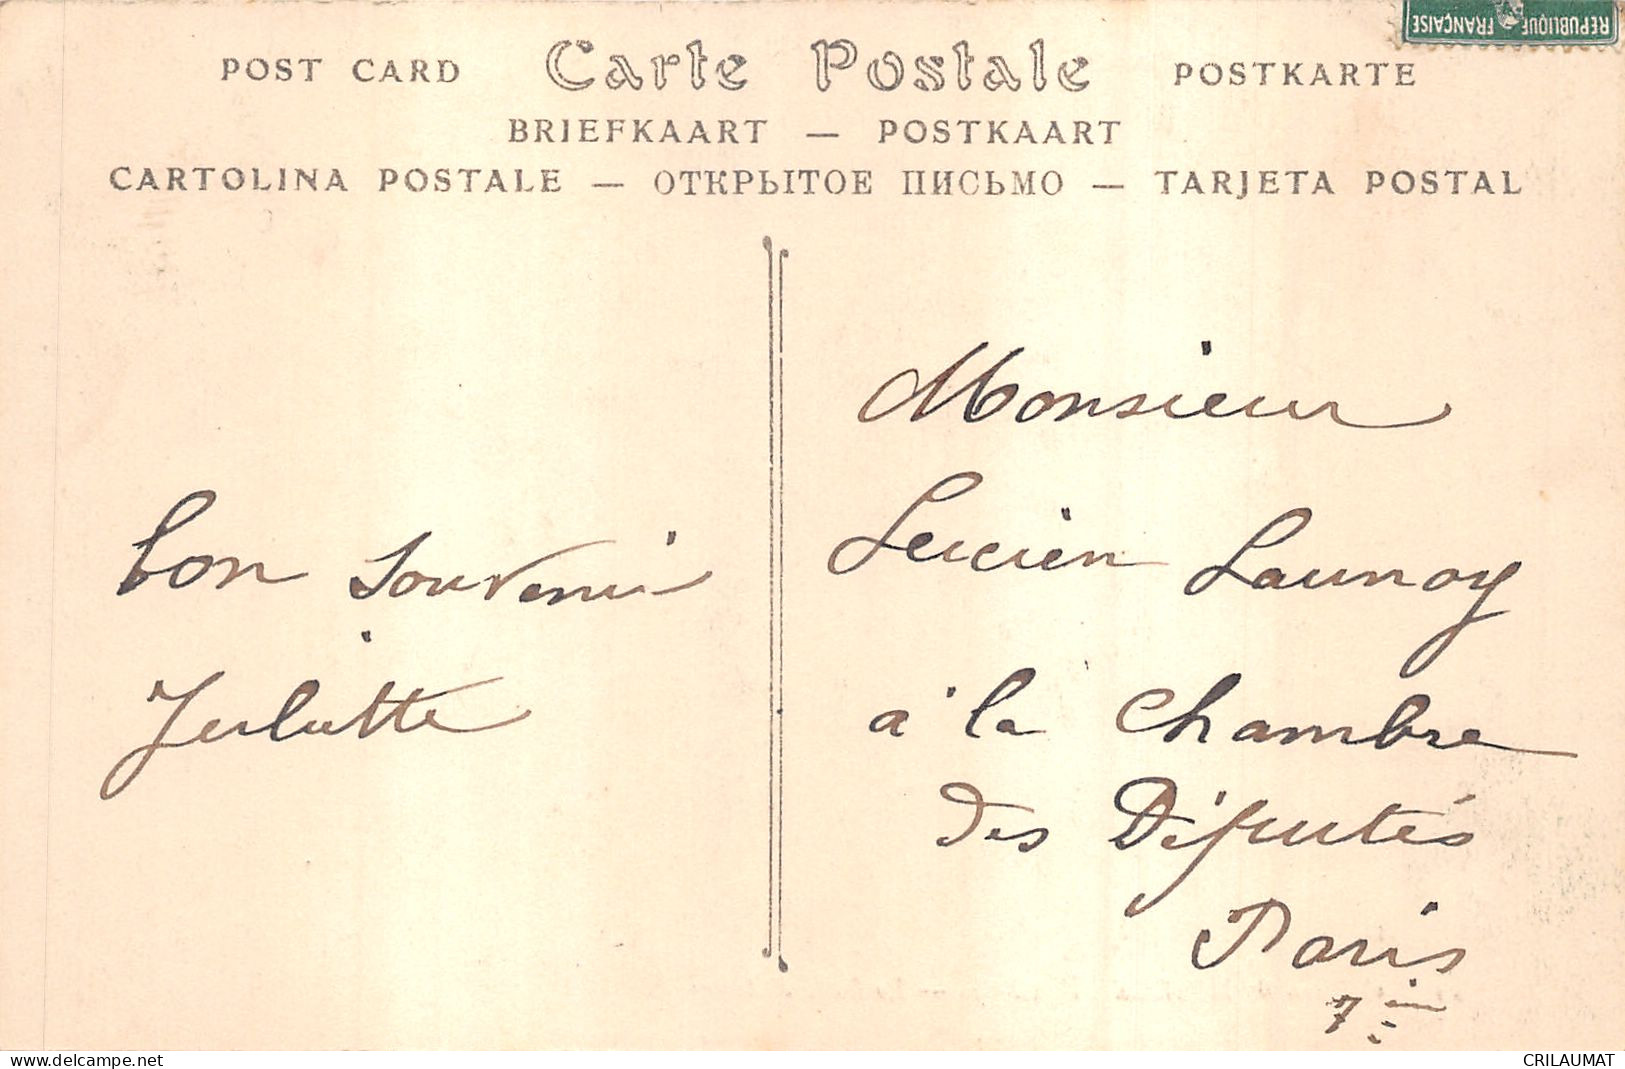 REPUBLIQUE FRANÇAISE
POST CARD Carte Postale POSTKARTE
BRIEFKAART — POSTKAART
CARTOLINA POSTALE — ОТКРЫТОЕ ПИСЬМО — TARJETA POSTAL
bon souvenir
Juliette
Monsieur
Lucien Launoy
à la Chambre
des Députés
Paris
7im
delcampe.net
CRILAUMAT